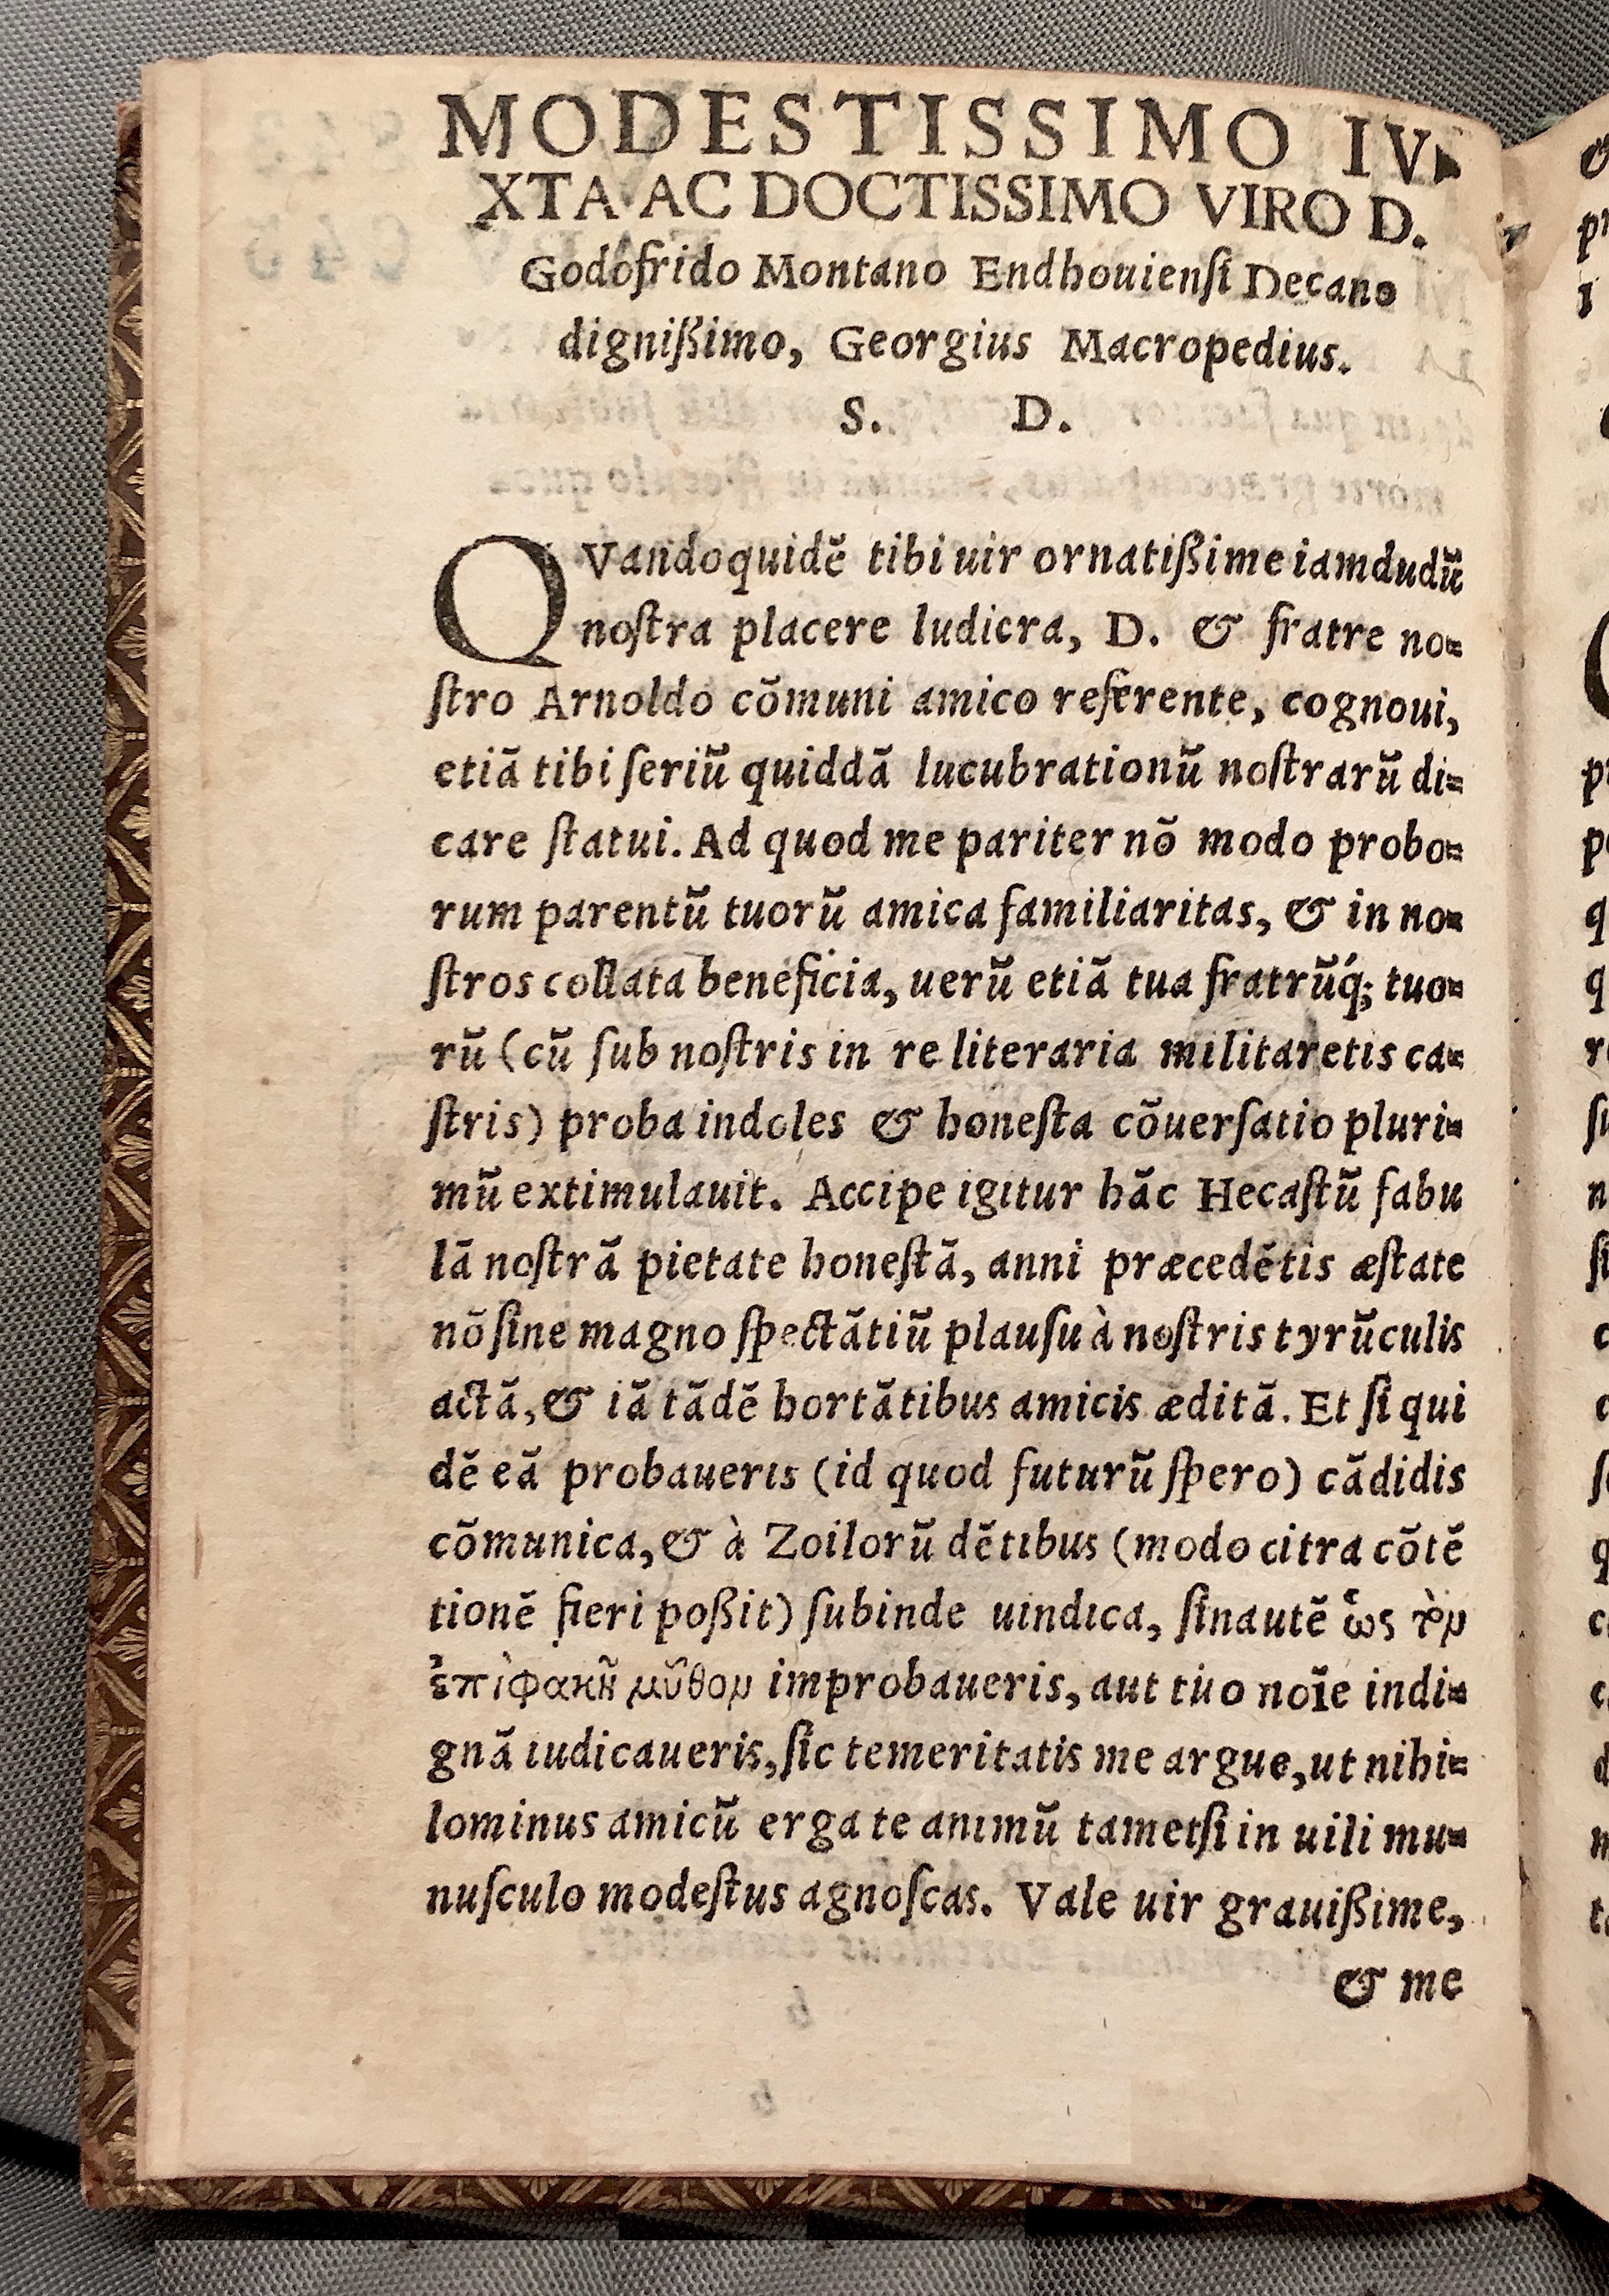 MODESTISSIMO IV-
XTA AC DOCTISSIMO VIRO D.
Godofrido Montano Endhouiensi Decano
dignißimo, Georgius Macropedius.
S. D.
QVandoquidẽ tibi uir ornatißime iamdudũ
nostra placere ludicra, D. & fratre no=
stro Arnoldo cõmuni amico referente, cognoui,
etiã tibi seriũ quiddã lucubrationũ nostrarũ di=
care statui. Ad quod me pariter nõ modo probo=
rum parentũ tuorũ amica familiaritas, & in no=
stros collata beneficia, uerũ etiã tua fratrũq́; tuo=
rũ (cũ sub nostris in re literaria militaretis ca=
stris) proba indoles & honesta cõuersatio pluri=
mũ extimulauit. Accipe igitur hãc Hecastũ fabu
lã nostrã pietate honestã, anni præcedẽtis æstate
nõ sine magno spectãtiũ plausu à nostris tyrũculis
actã, & iã tãdẽ hortãtibus amicis æditã. Et si qui
dẽ eã probaueris (id quod futurũ spero) cãdidis
cõmunica, & à Zoilorũ dẽtibus (modo citra cõtẽ
tionẽ fieri poßit) subinde uindica, sin autẽ ὡς τὸν
ἐπὶ φακῇ μῦθον improbaueris, aut tuo noĩe indi=
gnã iudicaueris, sic temeritatis me argue, ut nihi=
lominus amicũ erga te animũ tametsi in uili mu=
nusculo modestus agnoscas. Vale uir grauißime,
& me